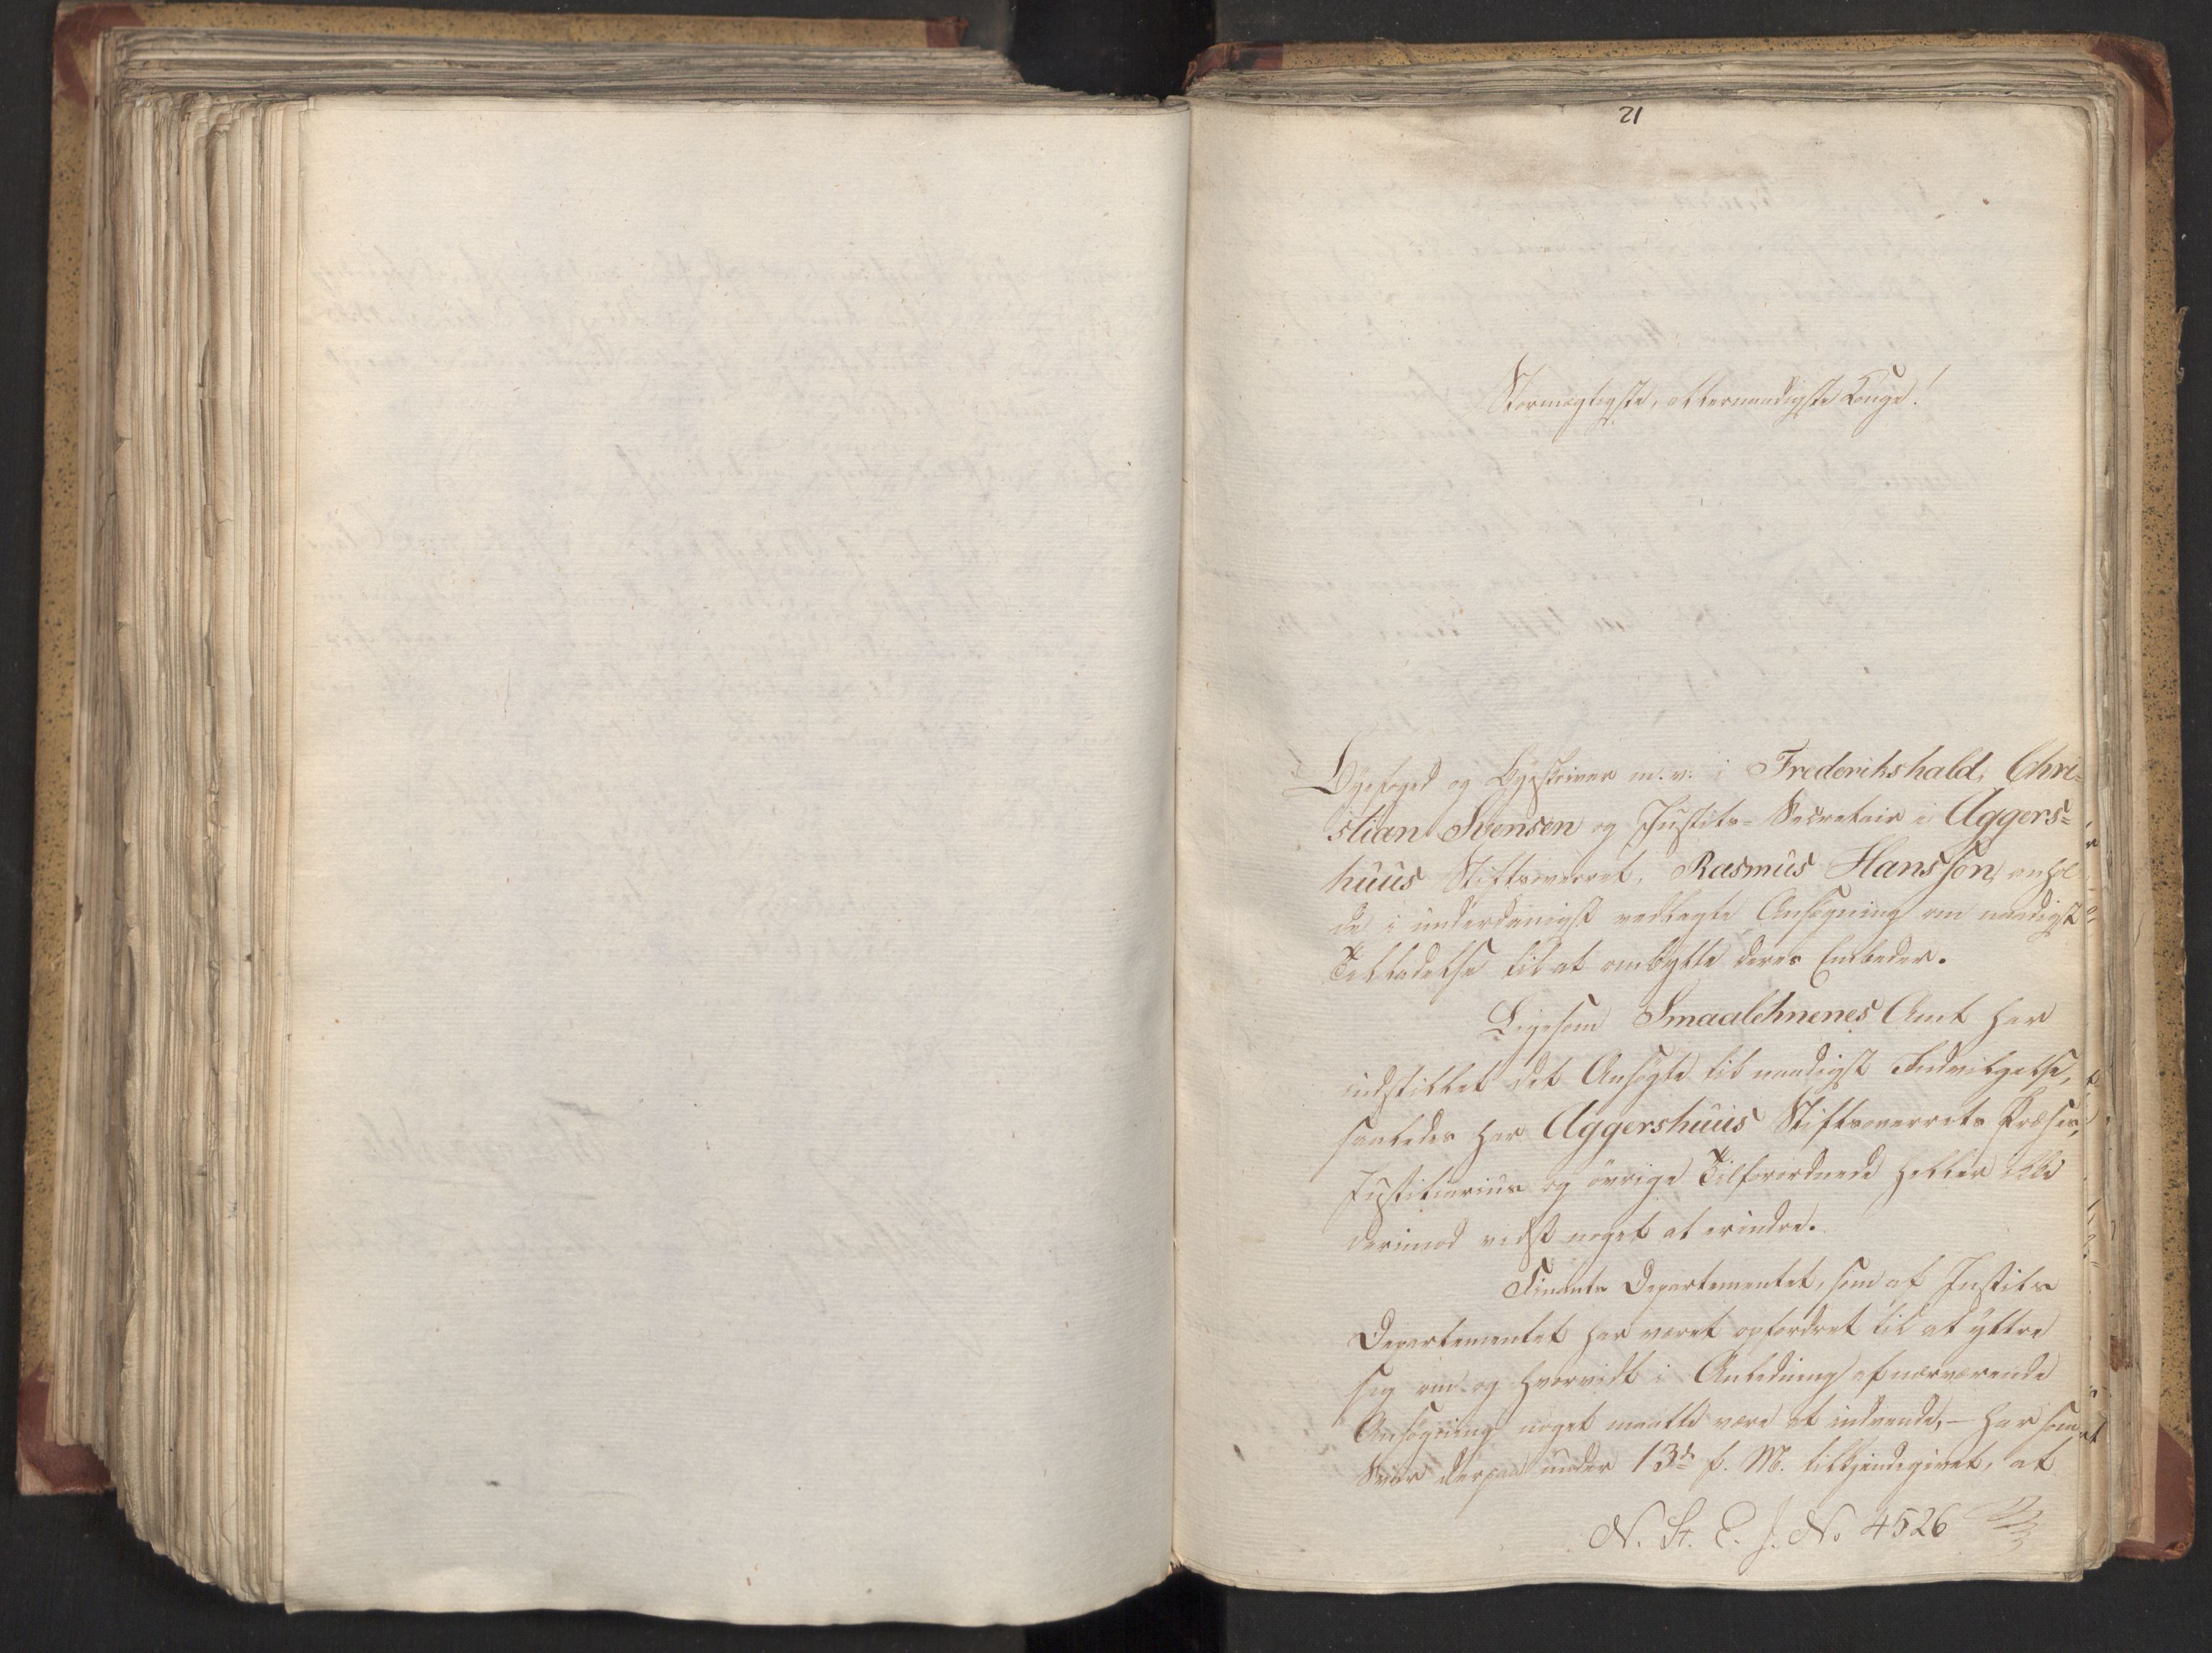 21
Stormægtigste, allernaadigste Konge!
Byefoged og Byeskriver m. v. i Frederikshald, Chri-
stian Svensen og Justits-Secretair i Aggers-
huus Stiftsoverret, Rasmus Hansson anhol-
de i underdanigst vedlagte Ansøgning om naadigst
Tilladelse til at ombytte deres Embeder.
Ligesom Smaalehnenes Amt har
indstillet det Ansøgte til naadigst Indvilgelse,
saaledes har Aggershuus Stiftsoverrets Præses,
Justitiarius og øvrige Tilforordnede heller ikke
derimod vidst noget at erindre.
Finants Departementet, som af Justits
Departementet har været opfordret til at yttre
sig om og hvorvidt i Anledning af nærværende
Ansøgning noget maatte være at indvende, - har som
Svar derpaa under 13de f. M. tilkjendegivet, at
N. St. E. J. No 4526